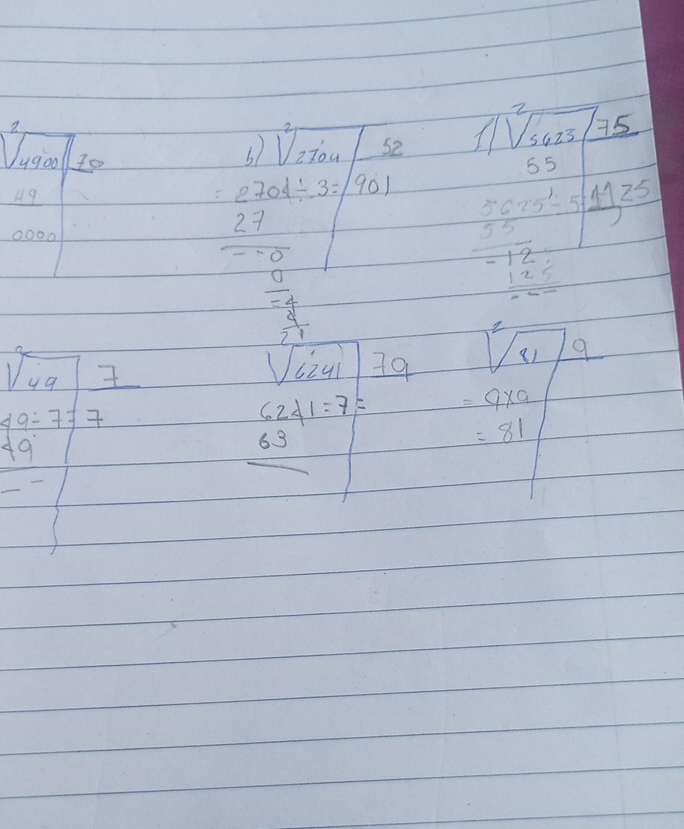 ²√4900 70
49
0000
b) ²√2704 52
: 2704 ÷ 3 = 901
27
--0
0
=4
f) ²√5625 75
55
5625 ÷ 5 1125
55
-12
125
---
²√49 7
49 ÷ 7 = 7
49
--
√6241 79
6241 = 7 =
63
²√81 9
= 9x9
= 81